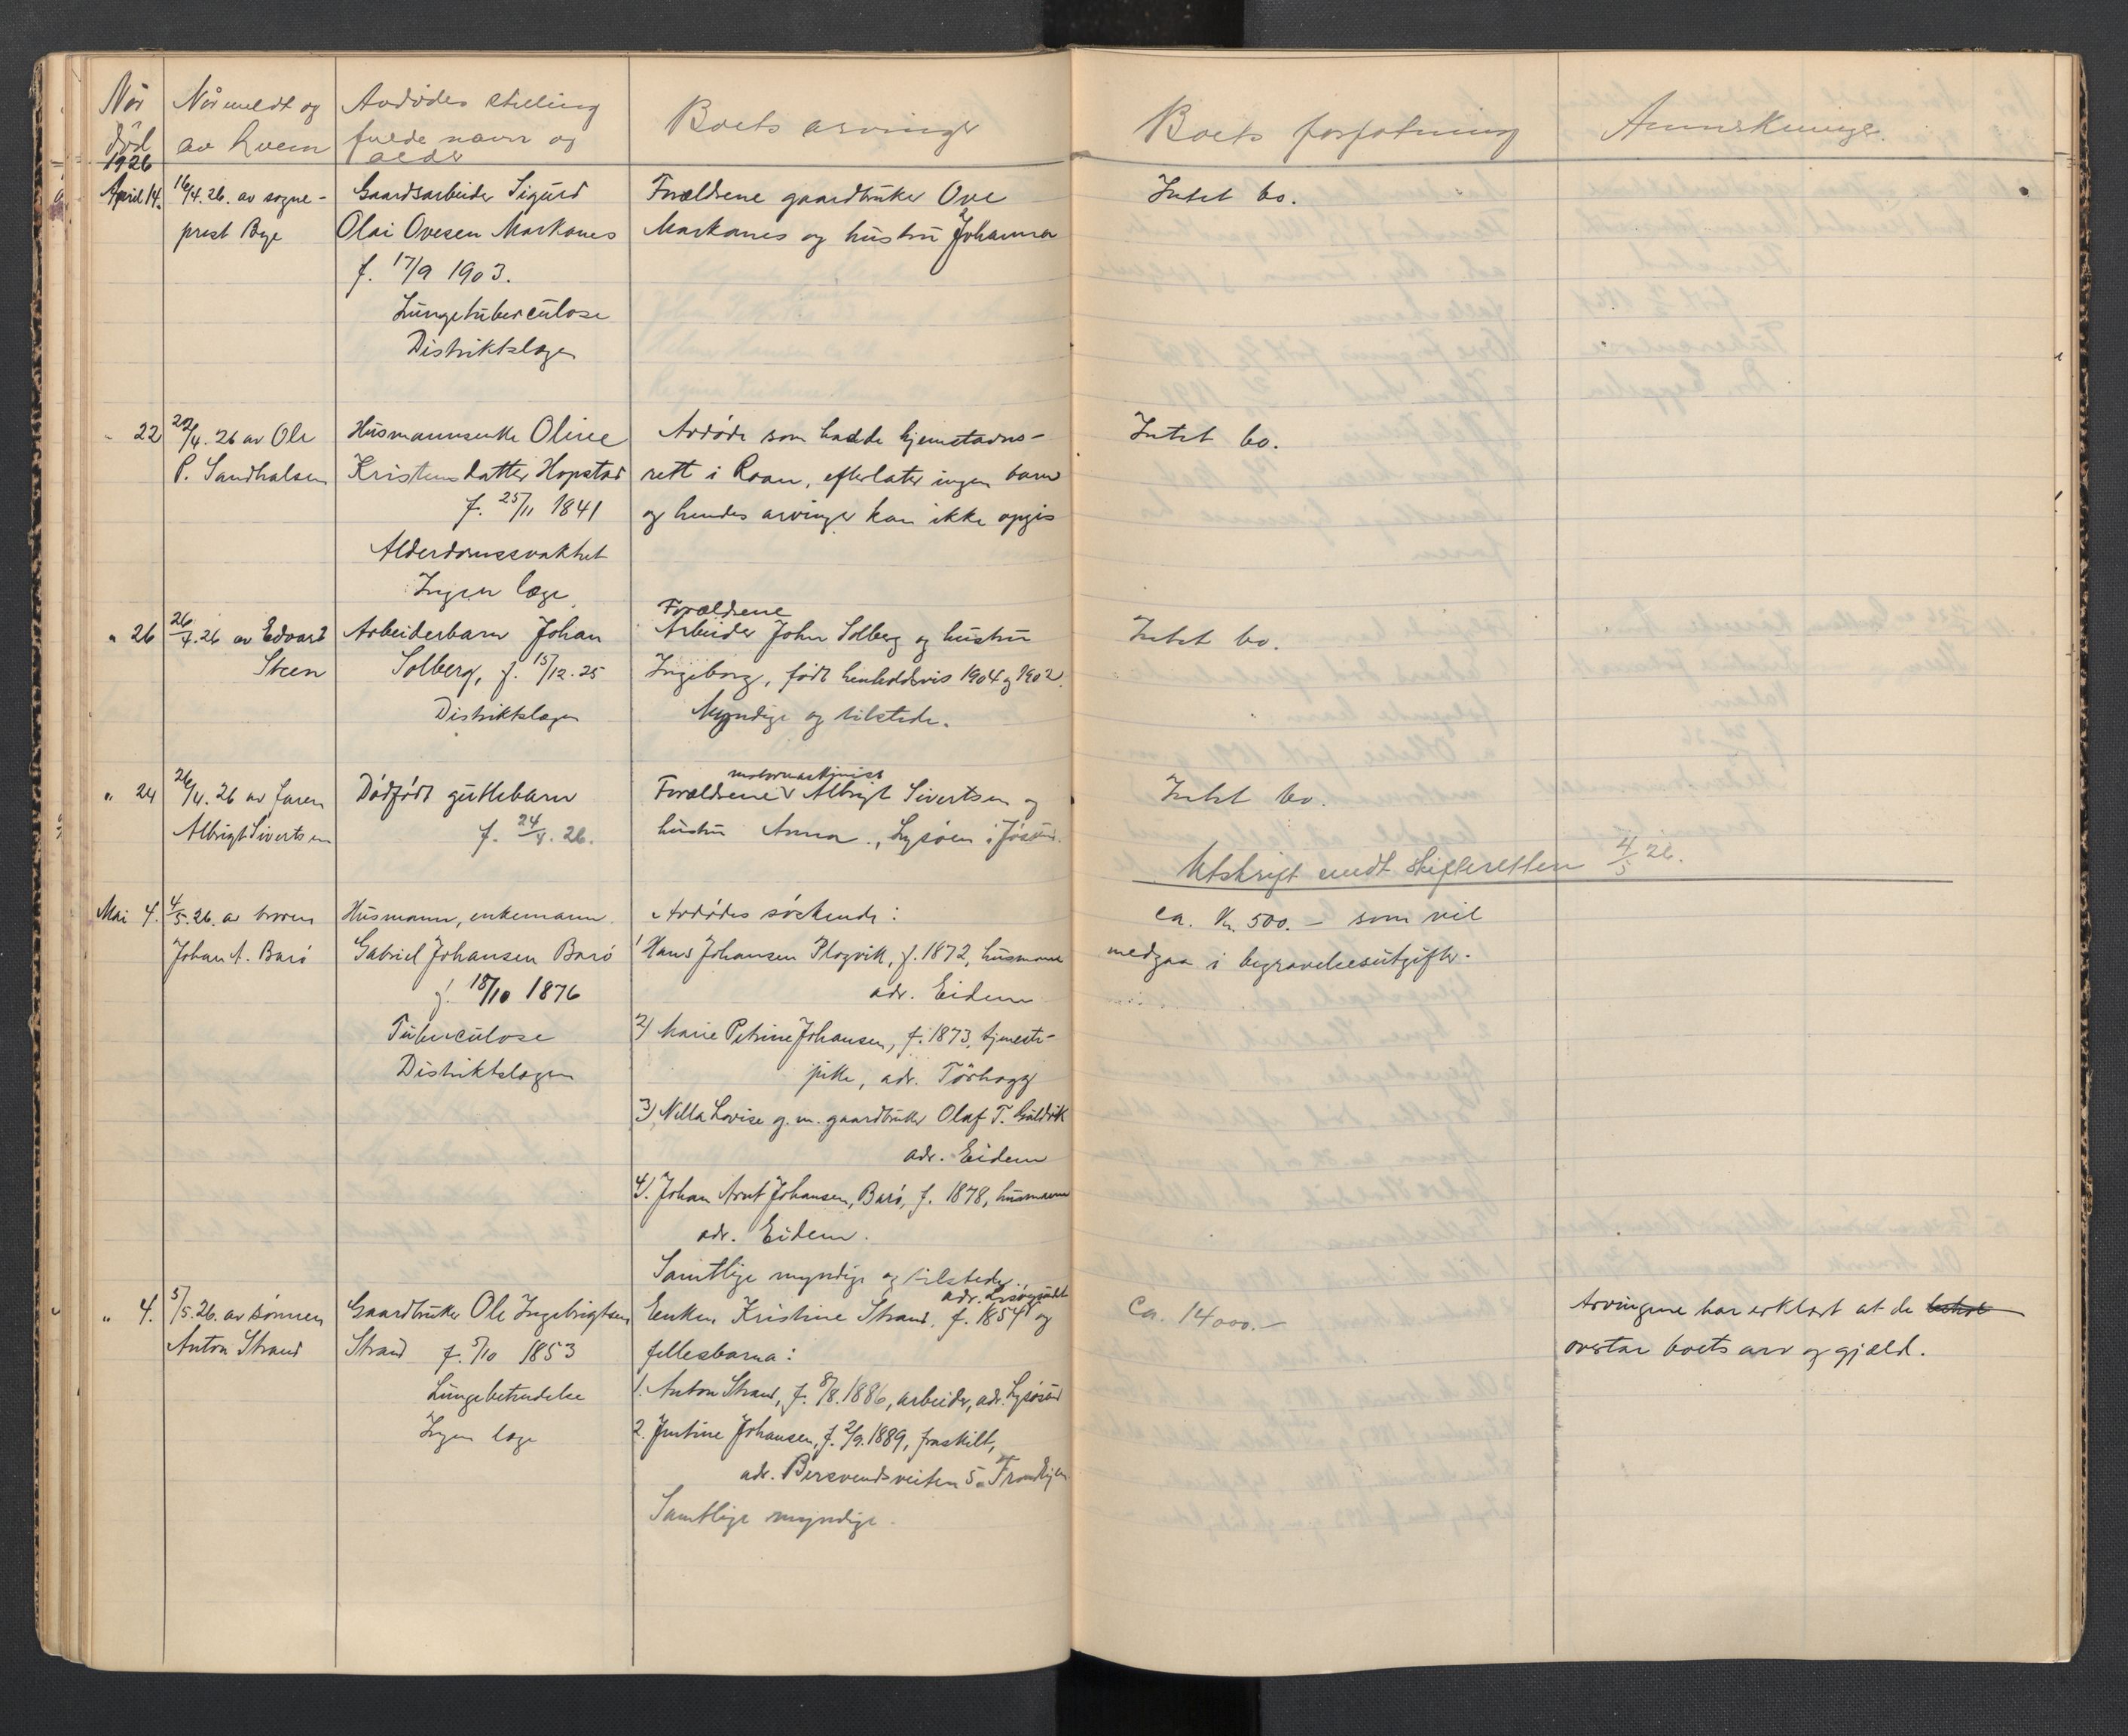 Når død
Når meldt og av hvem
Avdødes stilling fulde navn og alder
Boets arvinger
Boets forfatning
Anmerkninger.
1926
April 14.
16/4. 26. av sogne-
prest Bye
Gaardsarbeider Sigurd
Olai Ovesen Markanes
f. 17/9 1903.
Lungetuberculose
Distriktslægen
Forældrene gaardbruker Ove
Markanes og hustru Johanna
Intet bo.
" 22
22/4. 26 av Ole
P. Sandhalsen
Husmannsenke Oline
Kristensdatter Hopstad
f. 25/11 1841
Alderdomssvakhet
Ingen læge
Avdøde som hadde hjemstavns-
rett i Roan, efterlater ingen barn
og hendes arvinger kan ikke opgis
Intet bo.
" 26
26/4. 26 av Edvard
Steen
Arbeiderbarn Johan
Solberg, f. 15/12. 25
Distriktslægen
Forældrene
Arbeider John Solberg og hustru
Ingeborg, født henholdsvis 1904 og 1902.
Myndige og tilstede.
Intet bo.
" 24
26/4. 26 av faren
Albrigt Sivertsen
Dødfødt guttebarn
f. 24/4. 26.
motormaskinist
Forældrene Albrigt Sivertsen og
hustru Anna, Lysøen i Jøssund.
Intet bo.
Utskrift sendt skifteretten 4/5 26.
Mai 4.
4/5. 26. av broren
Johan A. Barø
Husmann, enkemann
Gabriel Johansen Barø
f. 18/10 1876
Tuberculose
Distriktslægen
Avdødes søskende:
1 Hans Johansen Plogvik, f. 1872, husmann
adr. Eidem
2) Marie Petrine Johansen, f. 1873, tjeneste-
pike, adr. Tørhogg
3) Nella Lovise g. m. gaardbruker Olaf T. Guldvik
adr. Eidem
4). Johan Arnt Johansen, Barø, f. 1878, husmann
adr. Eidem.
Samtlige myndige og tilstede.
ca. Kr. 500.- som vil
medgaa i begravelsesutgifter.
" 4.
5/5. 26. av sønnen
Anton Strand
Gaardbruker Ole Ingebrigtsen
Strand f. 5/10 1853
Lungebetendelse
Ingen læge
adr. Lysøysundet
Enken Kristine Strand, f. 1854 og
fellesbarna:
1. Anton Strand, f. 8/8. 1886, arbeider, adr. Lysøsund
2. Justine Johansen, f. 2/9. 1889, fraskilt,
adr. Bersvendsveiten 5a Trondhjem
Samtlige myndige.
Ca. 14000.-
Arvingerne har erklært at de
overtar boets arv og gjæld.